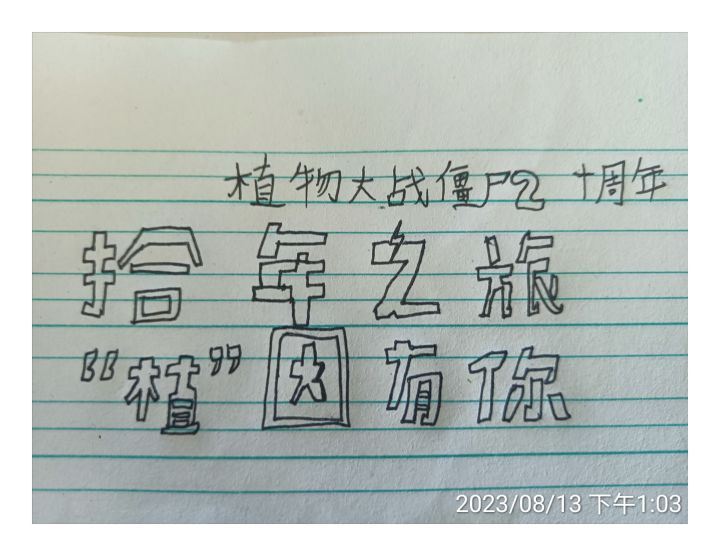 植物大战僵尸2 十周年
拾年之旅
“植”因有你
2023/08/13 下午1:03